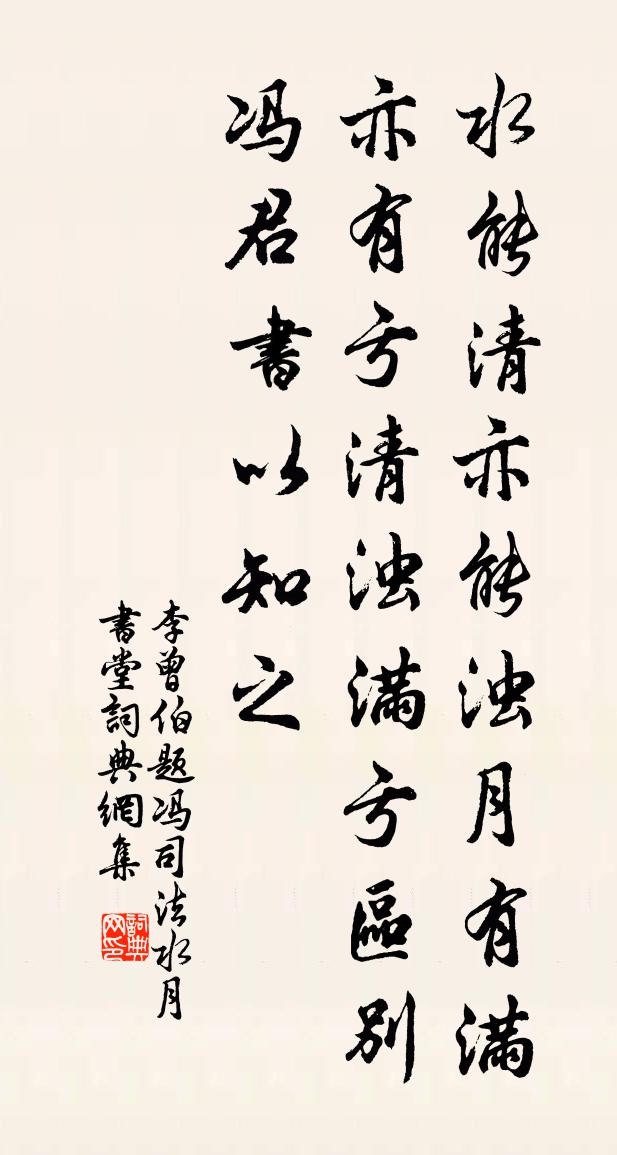 水能清亦能浊月有满
亦有亏清浊满亏區别
冯君書以知之
李曾伯题冯司法水月
書堂詞典網集
詞典
网印